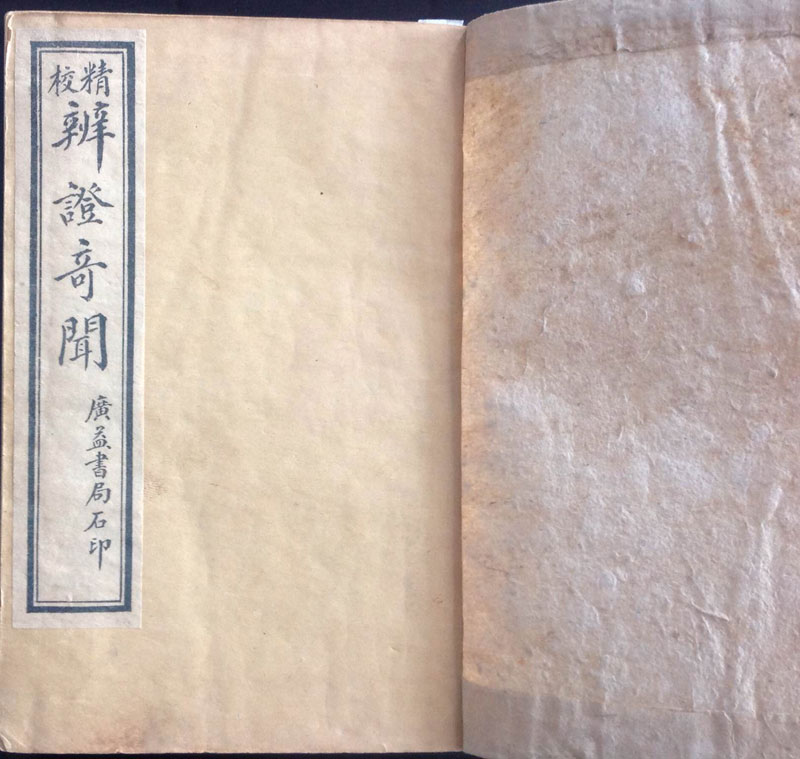 精校
辨證奇聞
廣益書局石印